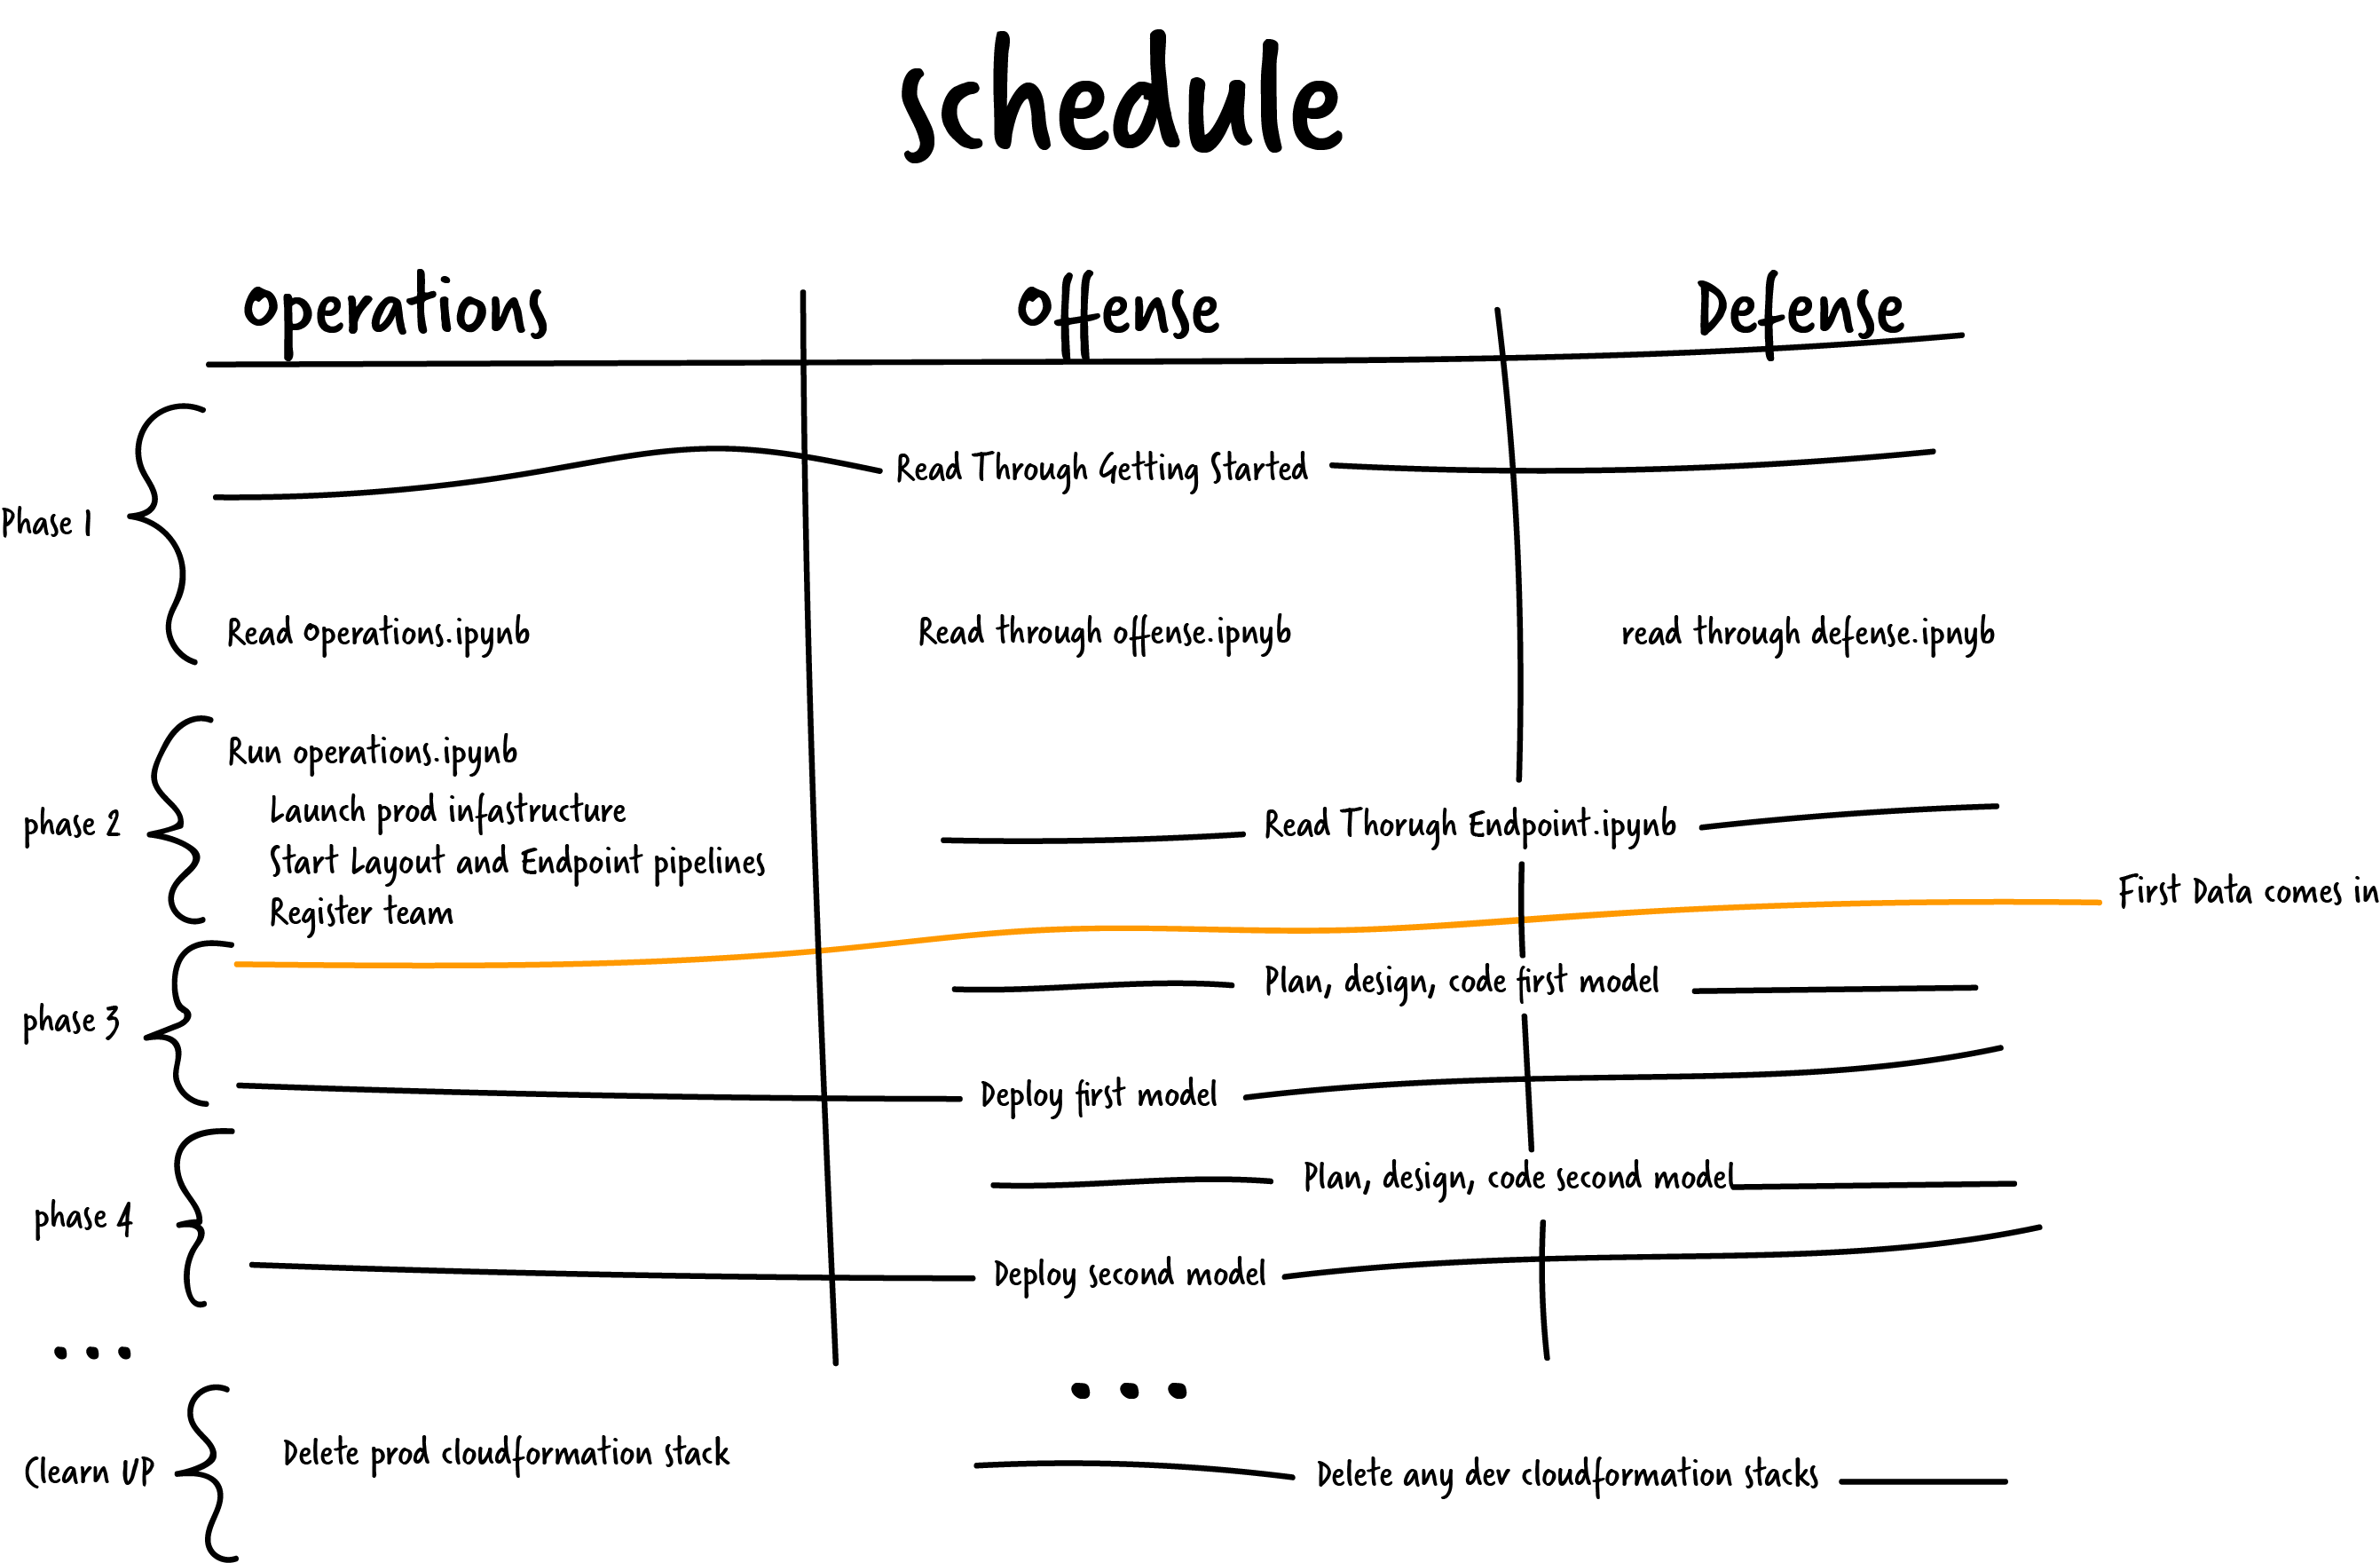 schedule
Operations
Offense
Defense
Phase 1
Read Through Getting Started
Read Operations.ipynb
Read through offense.ipnyb
read through defense.ipnyb
phase 2
Run operations.ipynb
Launch prod infastructure
Start Layout and Endpoint pipelines
Register team
Read Thorugh Endpoint.ipynb
First Data comes in
phase 3
Plan, design, code first model
Deploy first model
phase 4
Plan, design, code second model
Deploy second model
...
...
Clearn UP
Delete prod cloudformation stack
Delete any dev cloudformation stacks